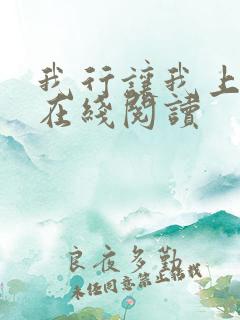 我行讓我上
在綫閱讀
良夜多勤
未经同意禁止转载